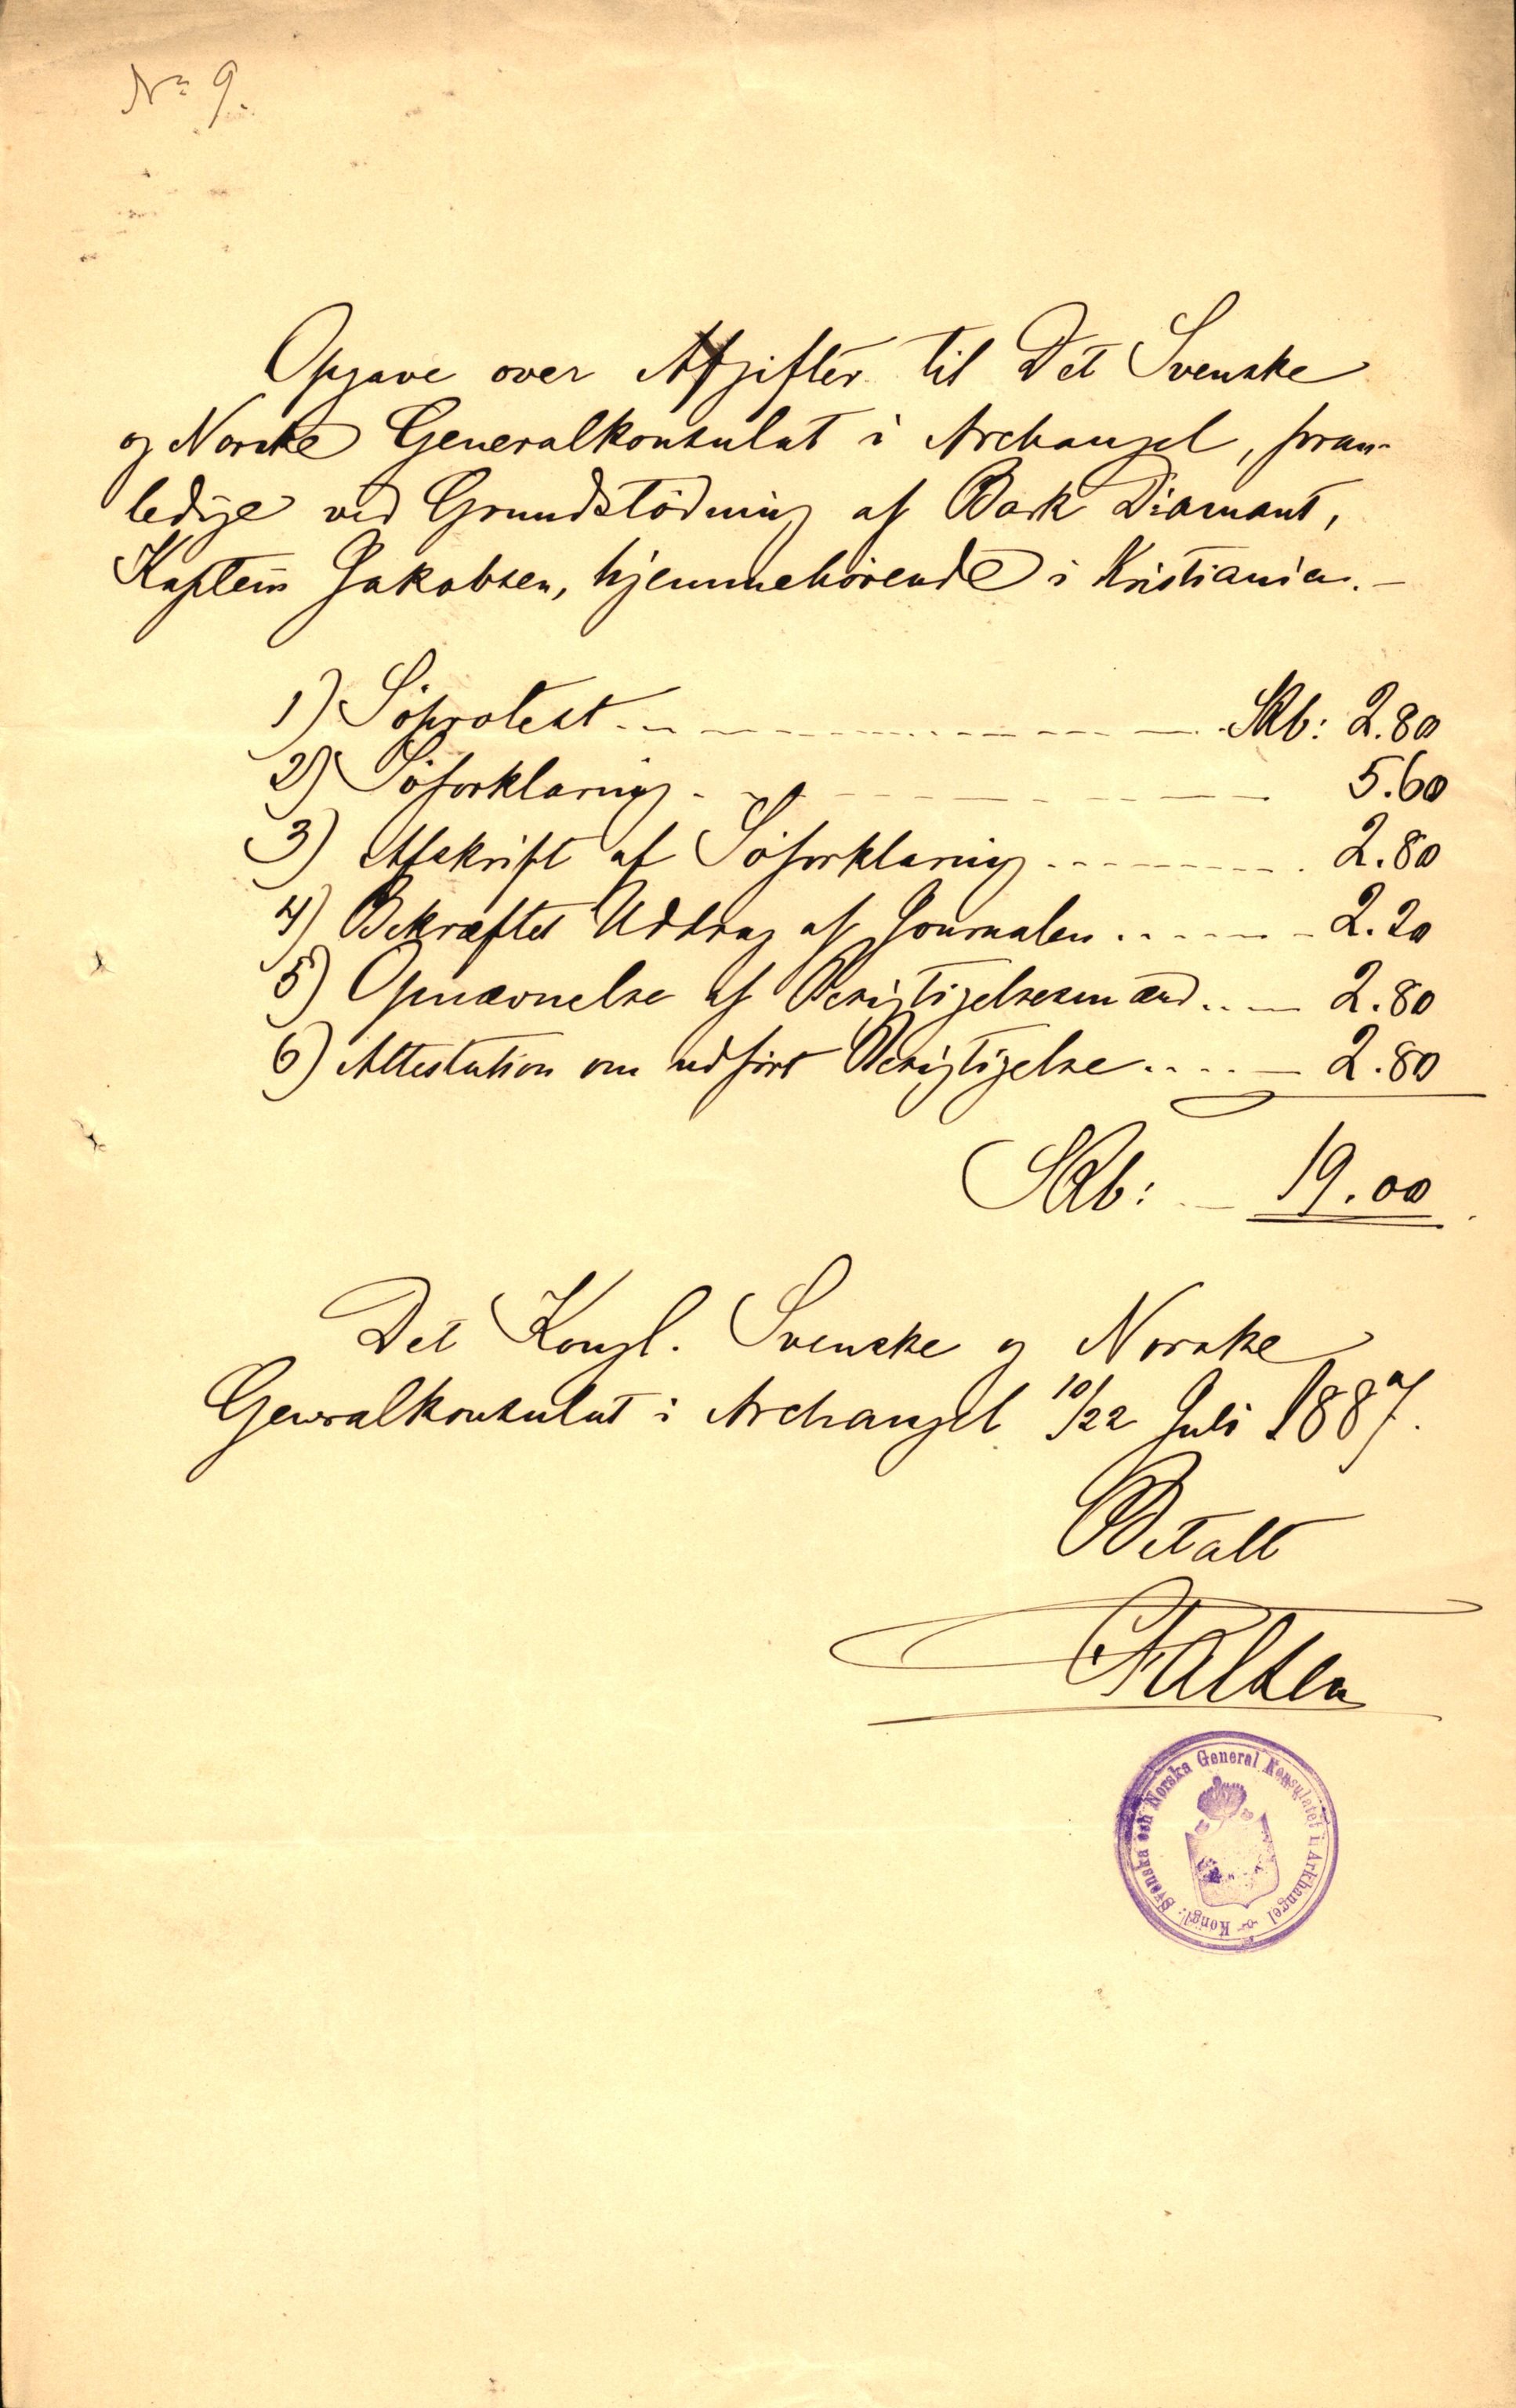 No 9.
Opgave over Afgifter til Det Svenske
og Norske Generalkonsulat i Archangel, foran-
ledige ved Grundstödning af Bark Diamant,
Kaptein Jakobsen, hjemmehörende i Kristiania. –
1) Söprotest SRb: 2.80
2) Söforklaring 5.60
3) Afskrift af Söforklaring 2.80
4) Bekræftet Uddrag af Journalen 2.20
5) Opnævnelse af Besigtigelsesmænd 2.80
6) Attestation om udfört Besigtigelse 2.80
SRb: 19.00
Det Kongl. Svenske og Norske
Generalkonsulat i Archangel 10/22 Juli 1887.
Betalt
Falsen
Kongl: Svenska och Norska General Konsulatet i Arkhangel